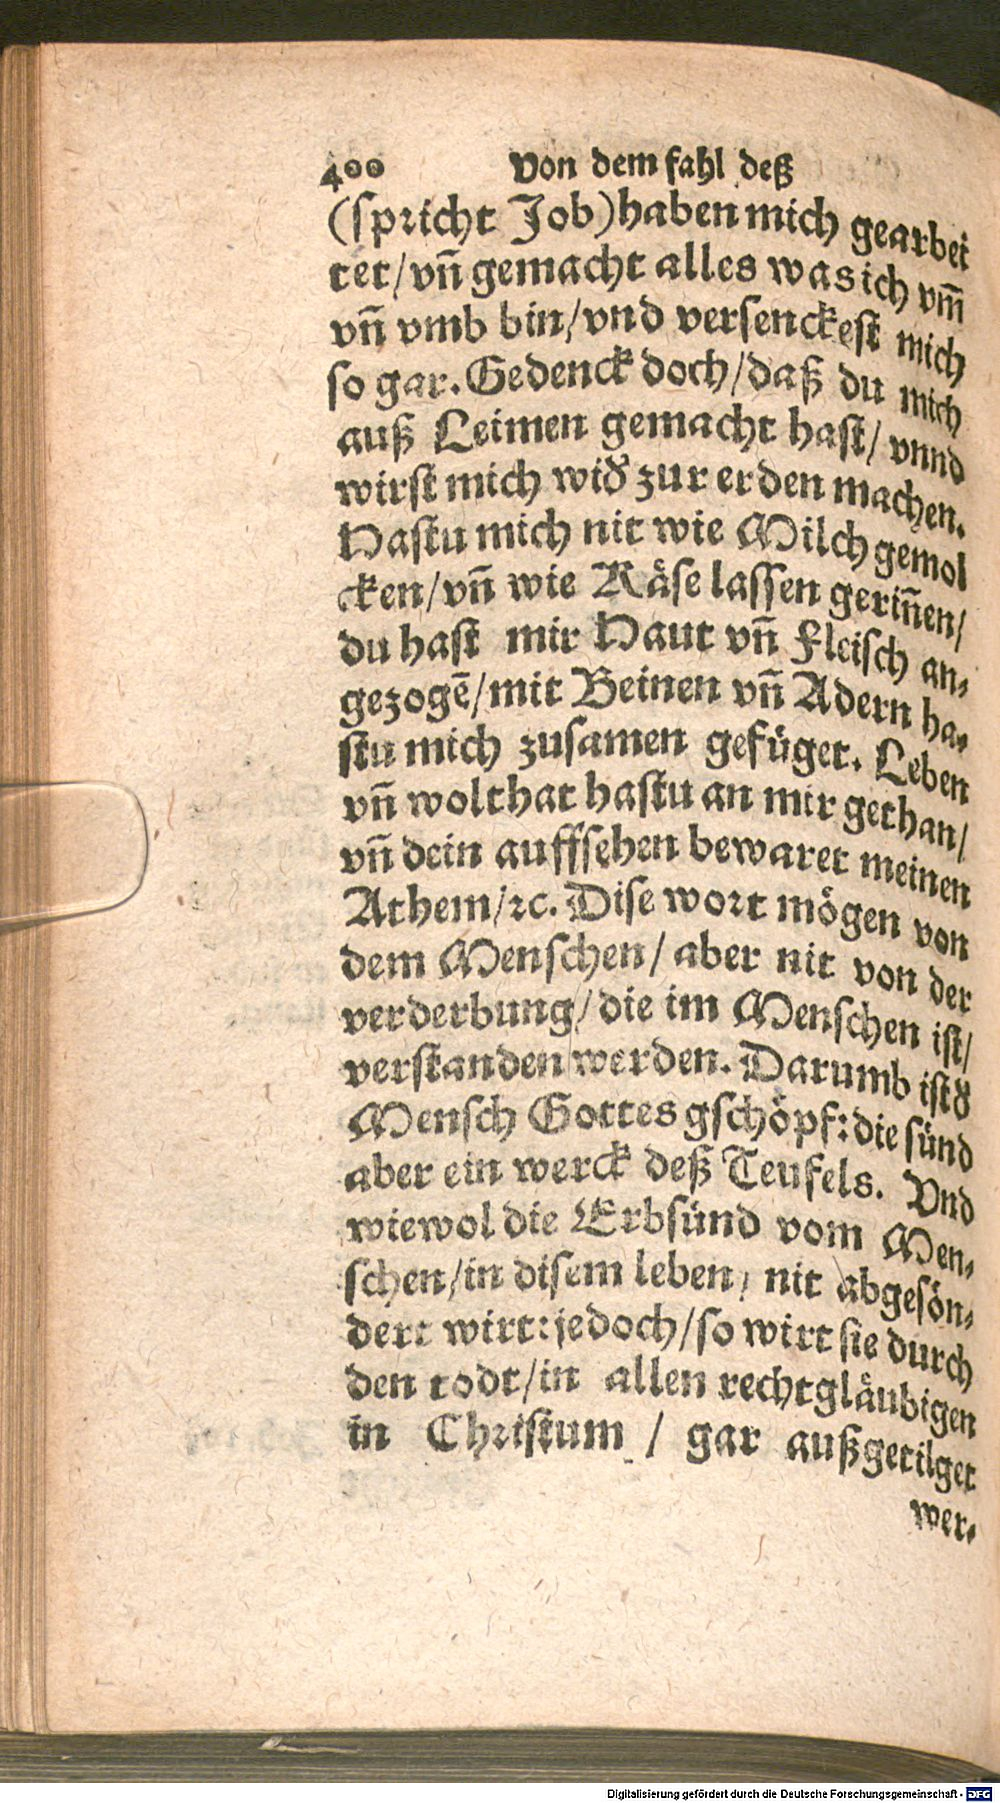 400 Von dem fahl deß
(spricht Job) haben mich gearbei
tet/ vñ gemacht alles was ich vm̃
vñ vmb bin/ vnd versenckest mich
so gar. Gedenck doch/ daß du mich
auß Leimen gemacht hast/ vnnd
wirst mich wid̕ zur erden machen.
Hastu mich nit wie Milch gemol
cken/ vñ wie Käse lassen geriñen/
du hast mir Haut vñ Fleisch an-
gezogē/ mit Beinen vñ Adern ha-
stu mich zusamen gefüget. Leben
vñ wolthat hastu an mir gethan/
vñ dein auffsehen bewaret meinen
Athem/ ꝛc. Dise wort mögen von
dem Menschen/ aber nit von der
verderbung/ die im Menschen ist/
verstanden werden. Darumb ist d̕
Mensch Gottes gschöpf: die sünd
aber ein werck deß Teufels. Vnd
wiewol die Erbsünd vom Men-
schen/ in disem leben, nit abgesön-
dert wirt: jedoch/ so wirt sie durch
den todt/ in allen rechtgläubigen
in Christum / gar außgetilget
wer-
Digitalisierung gefördert durch die Deutsche Forschungsgemeinschaft - DFG